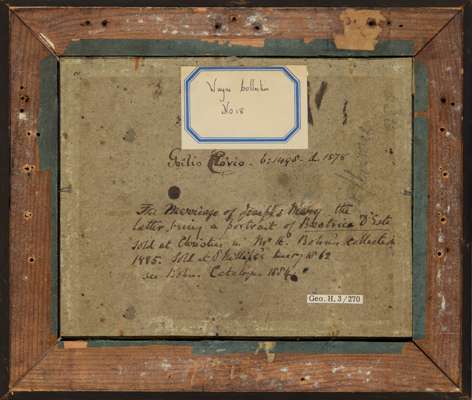 No 18
Clovio. b: 1498. d. 1578
The Marriage of Joseph & Mary the
latter, being a portrait of Beatrice D'Este
Sold at Christies in Mr H. Bohn's collection
1885. Sold at Phillips 1862
see Bohn. Catalogue 1884.
Geo. H. 3/270